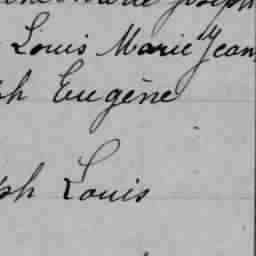 Marie Joseph
Louis Marie Jean
ph Eugène
ph Louis